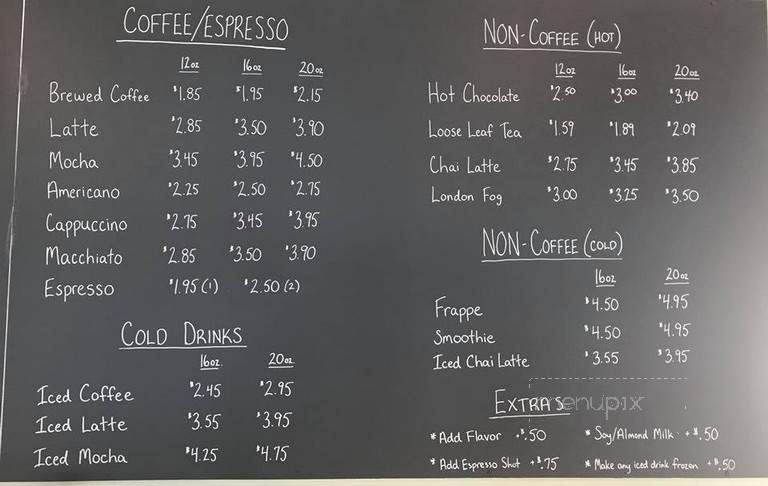 COFFEE/ESPRESSO
12oz 16oz 20oz
Brewed Coffee $1.85 $1.95 $2.15
Latte $2.85 $3.50 $3.90
Mocha $3.45 $3.95 $4.50
Americano $2.25 $2.50 $2.75
Cappuccino $2.75 $3.45 $3.95
Macchiato $2.85 $3.50 $3.90
Espresso $1.95 (1) $2.50 (2)
COLD DRINKS
16oz. 20oz.
Iced Coffee $2.45 $2.95
Iced Latte $3.55 $3.95
Iced Mocha $4.25 $4.75
NON-COFFEE (HOT)
12oz 16oz 20oz
Hot Chocolate $2.50 $3.00 $3.40
Loose Leaf Tea $1.59 $1.89 $2.09
Chai Latte $2.75 $3.45 $3.85
London Fog $3.00 $3.25 $3.50
NON-COFFEE (COLD)
16oz 20oz
Frappe $4.50 $4.95
Smoothie $4.50 $4.95
Iced Chai Latte $3.55 $3.95
EXTRAS
menupix
* Add Flavor +$.50 * Soy/Almond Milk +$.50
* Add Espresso Shot +$.75 * Make any iced drink frozen +$.50